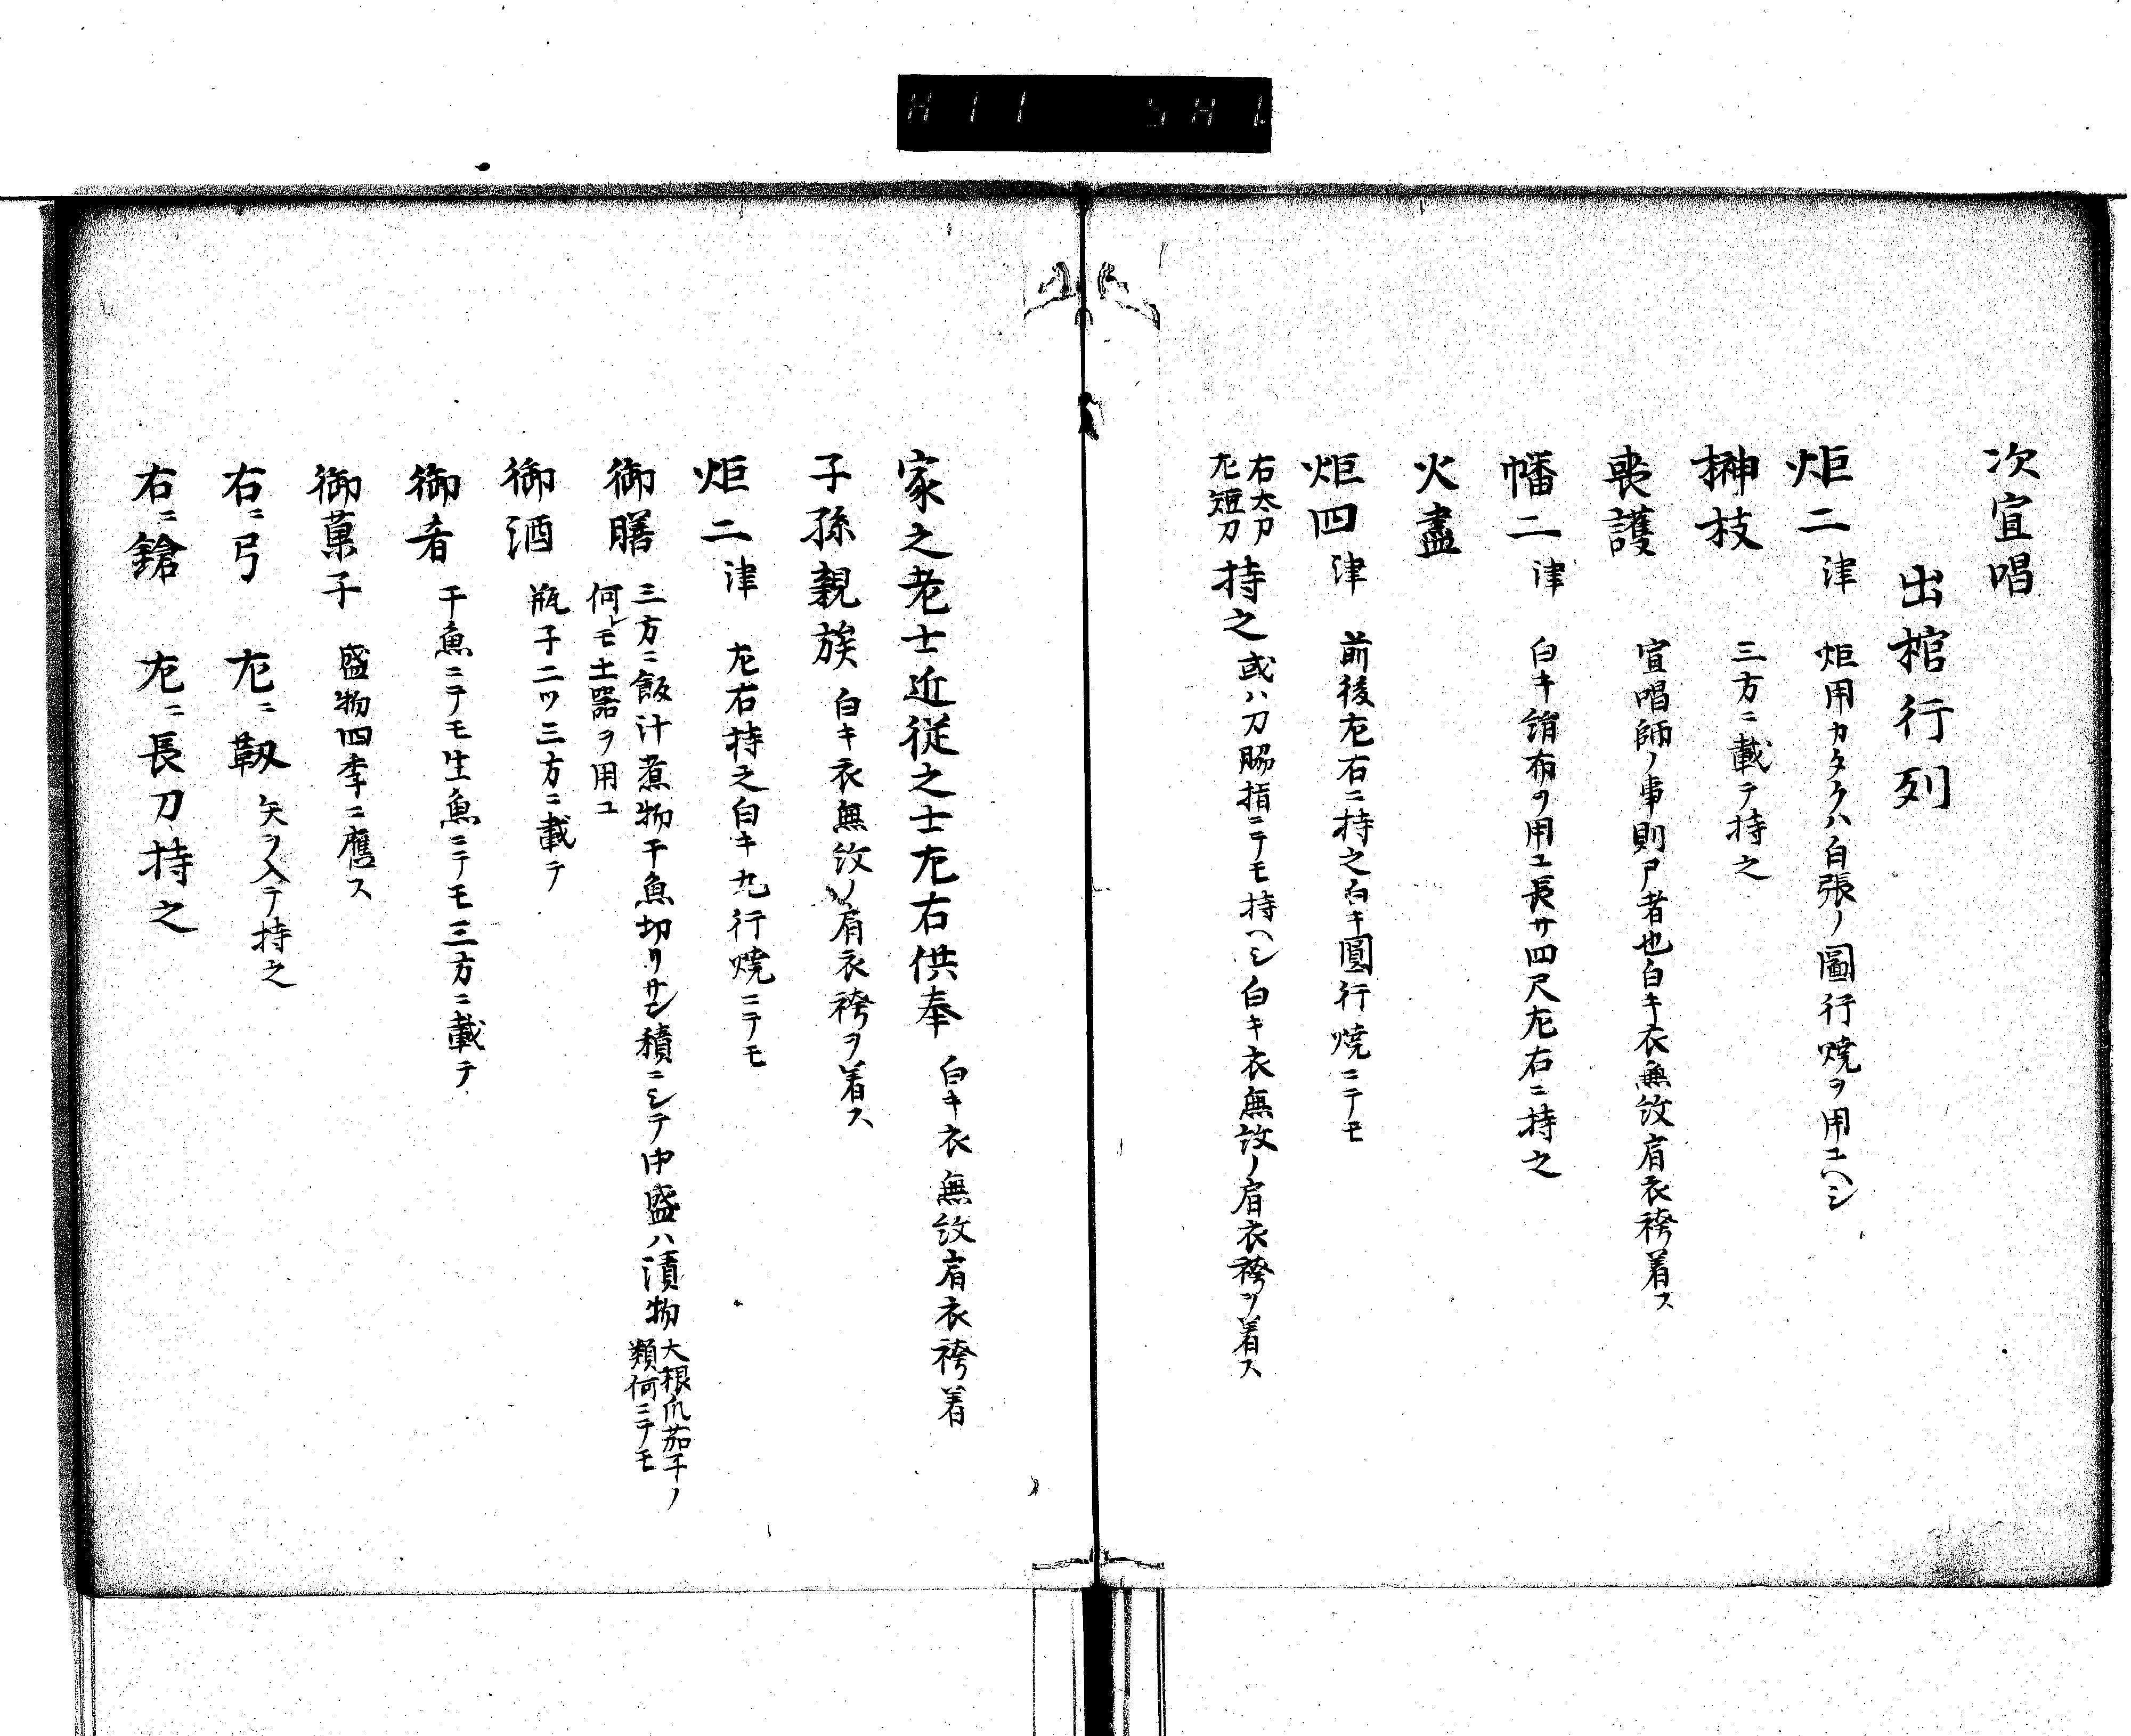 次宣唱
出棺行列
炬二津 炬用カタクハ白張ノ圓行燒ヲ用ユヘシ
榊枝 三方ニ載テ持之
喪護 宣唱師ノ事則尸者也白キ衣無紋肩衣袴着ス
幡二津 白キ絹布ヲ用ユ長サ四尺左右ニ持之
火盡
炬四津 前後左右ニ持之白キ圓行燒ニテモ
右太刀
左短刀
持之 或ハ刀脇指ニテモ持ヘシ白キ衣無紋ノ肩衣袴ヲ着ス
家之老士近従之士左右供奉 白キ衣無紋肩衣袴着
子孫親族 白キ衣無紋ノ肩衣袴ヲ着ス
炬二津 左右持之白キ丸行燒ニテモ
御膳 三方ニ飯汁煮物干魚切リサシ積ニシテ中盛ハ漬物 大根瓜茄子ノ
類何ニテモ
何レモ土器ヲ用ユ
御酒 瓶子二ツ三方ニ載テ
御肴 干魚ニテモ生魚ニテモ三方ニ載テ
御菓子 盛物四季ニ應ス
右ニ弓 左ニ靫 矢ヲ入テ持之
右ニ鎗 左ニ長刀持之
H11 5H1.